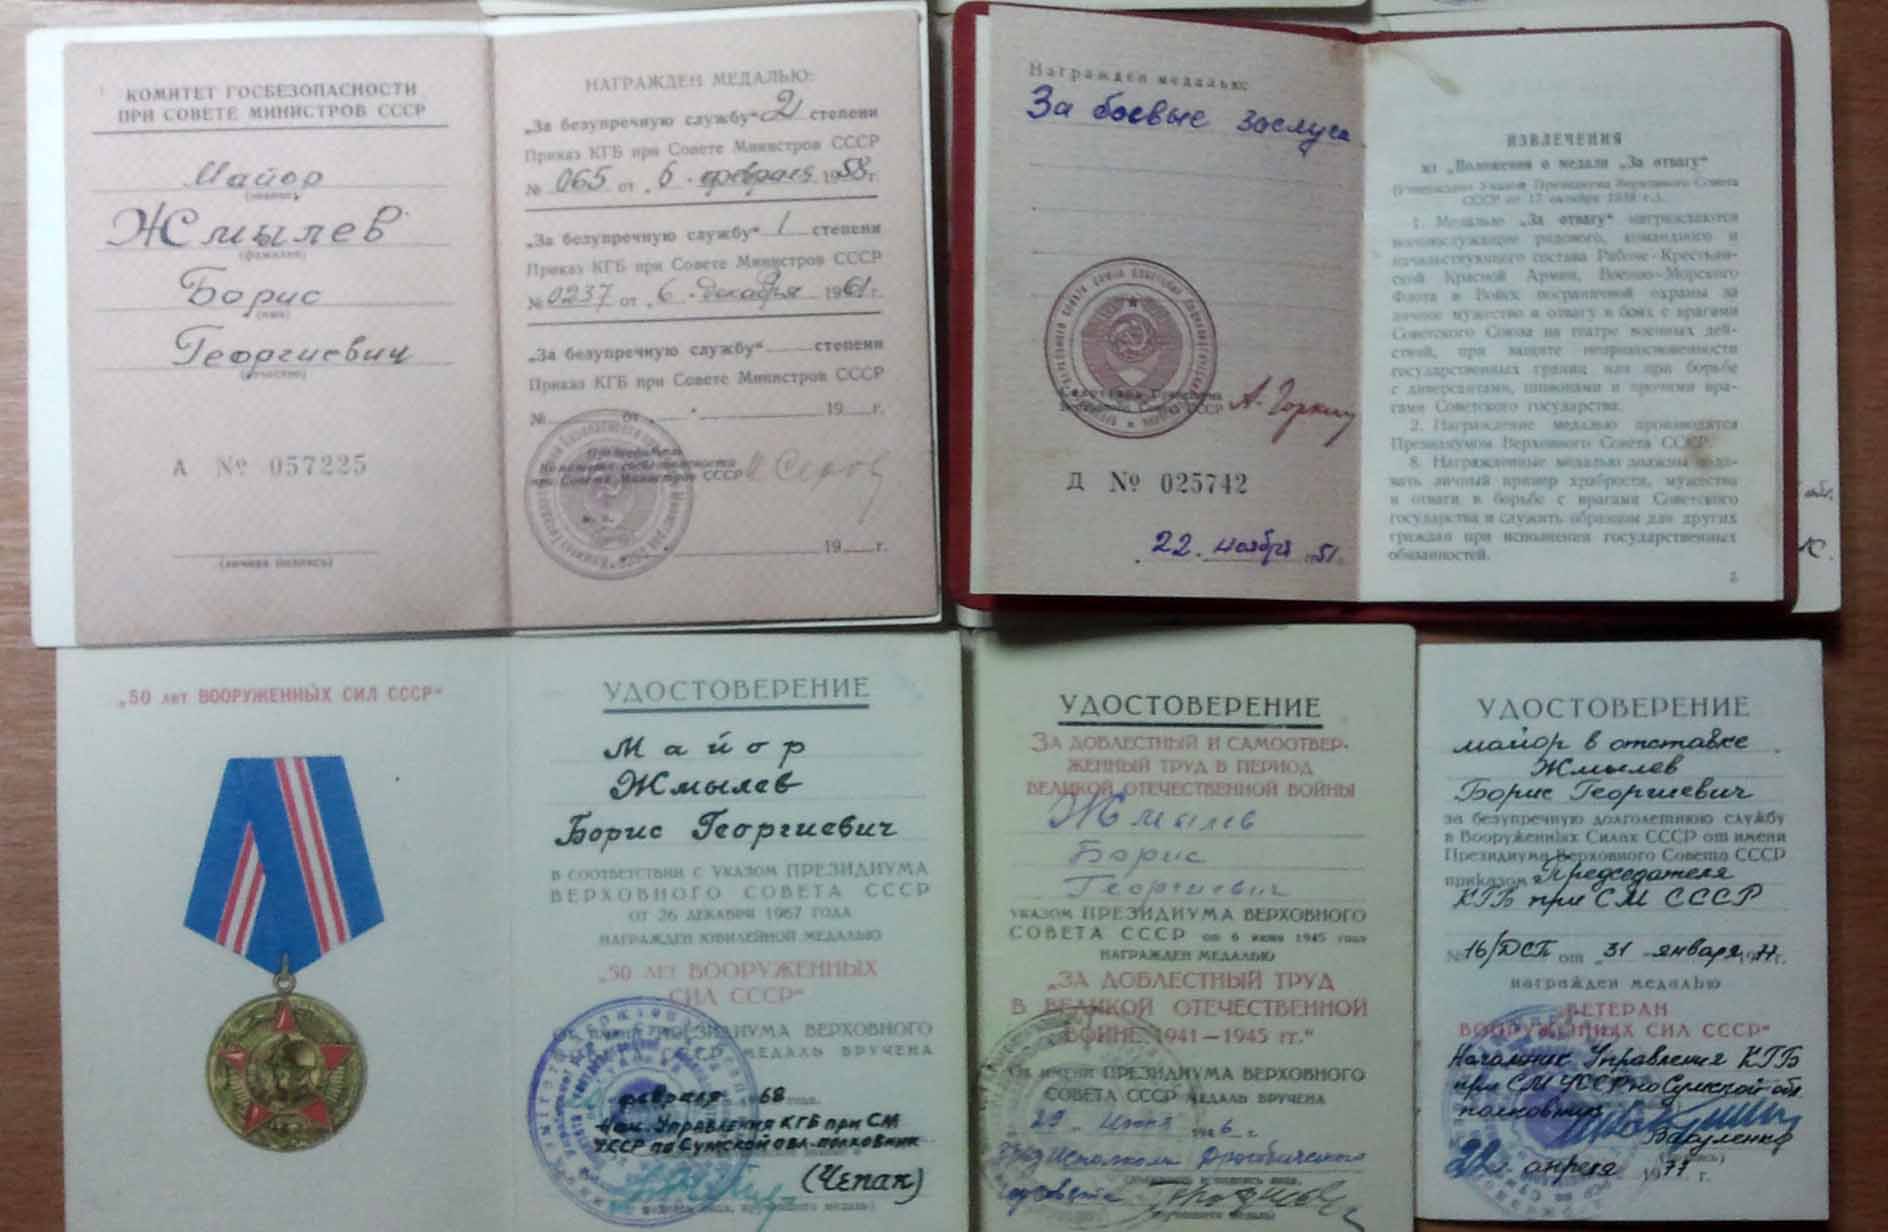 КОМИТЕТ ГОСБЕЗОПАСНОСТИ
ПРИ СОВЕТЕ МИНИСТРОВ СССР
Майор
Жмылев
(фамилия)
Борис
(имя)
Георгиевич
(отчество)
А № 057225
(личная подпись)
НАГРАЖДЕН МЕДАЛЬЮ:
„За безупречную службу“ 2 степени
Приказ КГБ при Совете Министров СССР
№ 065 от „6 февраля 1958 г.
„За безупречную службу“ 1 степени
Приказ КГБ при Совете Министров СССР
№ 0237 от „6 декабря 1961 г.
„За безупречную службу“ степени
Приказ КГБ при Совете Министров СССР
№ от 19 г.
Председатель
Комитета госбезопасности
при Совете Министров СССР
19 г.
Награжден медалью:
За боевые заслуги
Верховного Совета СССР А. Горкин
Д № 025742
22. ноября 1951г.
ИЗВЛЕЧЕНИЯ
из „Положения о медали „За отвагу“
(Утверждено Указом Президиума Верховного Совета
СССР от 17 октября 1938 г.).
1. Медалью „За отвагу“ награждаются
военнослужащие рядового, командного и
начальствующего состава Рабоче-Крестьян-
ской Красной Армии, Военно-Морского
Флота и Войск пограничной охраны за
личное мужество и отвагу в боях с врагами
Советского Союза на театре военных дей-
ствий, при защите неприкосновенности
государственных границ или при борьбе
с диверсантами, шпионами и прочими вра-
гами Советского государства.
2. Награждение медалью производится
Президиумом Верховного Совета СССР.
8. Награжденные медалью должны пода-
вать личный пример храбрости, мужества
и отваги в борьбе с врагами Советского
государства и служить образцом для других
граждан при исполнении государственных
обязанностей.
„50 лет ВООРУЖЕННЫХ СИЛ СССР“
УДОСТОВЕРЕНИЕ
Майор
Жмылев
Борис Георгиевич
В СООТВЕТСТВИИ С УКАЗОМ ПРЕЗИДИУМА
ВЕРХОВНОГО СОВЕТА СССР
ОТ 26 ДЕКАБРЯ 1967 ГОДА
НАГРАЖДЕН ЮБИЛЕЙНОЙ МЕДАЛЬЮ
„50 ЛЕТ ВООРУЖЕННЫХ
СИЛ СССР“
ПРЕЗИДИУМА ВЕРХОВНОГО
СССР МЕДАЛЬ ВРУЧЕНА
февраля 68 года.
Нач. Управления КГБ при СМ
УССР по Сумской обл. полковник
(Чепак)
УДОСТОВЕРЕНИЕ
ЗА ДОБЛЕСТНЫЙ И САМООТВЕР-
ЖЕННЫЙ ТРУД В ПЕРИОД
ВЕЛИКОЙ ОТЕЧЕСТВЕННОЙ ВОЙНЫ
Жмылев
Борис
Георгиевич
УКАЗОМ ПРЕЗИДИУМА ВЕРХОВНОГО
СОВЕТА СССР от 6 июня 1945 года
НАГРАЖДЕН МЕДАЛЬЮ
„ЗА ДОБЛЕСТНЫЙ ТРУД
В ВЕЛИКОЙ ОТЕЧЕСТВЕННОЙ
ВОЙНЕ 1941—1945 гг.“
От имени ПРЕЗИДИУМА ВЕРХОВНОГО
СОВЕТА СССР МЕДАЛЬ ВРУЧЕНА
Исполкома Дрогобичского
горсовета
УДОСТОВЕРЕНИЕ
майор в отставке
Жмылев
Борис Георгиевич
за безупречную долголетнюю службу
в Вооруженных Силах СССР от имени
Президиума Верховного Совета СССР
приказом Председателя
КГБ при СМ СССР
№ 16/ДСП от „31 января 1977 г.
награжден медалью
ВЕТЕРАН
ВООРУЖЕННЫХ СИЛ СССР“
Начальник Управления КГБ
при СМ УССР по Сумской обл
полковник
Вакуленко
22 апреля 1977 г.